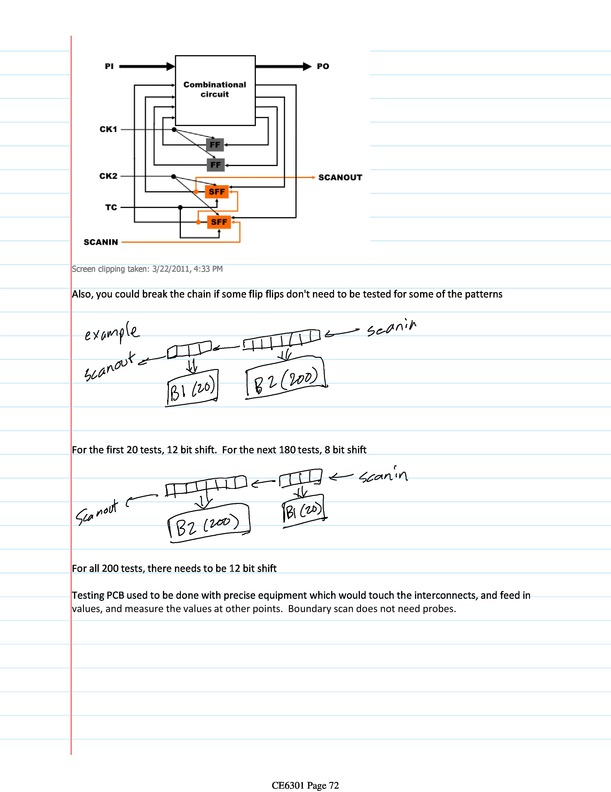 PI
PO
Combinational
circuit
CK1
FF
FF
CK2
SCANOUT
SFF
TC
SFF
SCANIN
Screen clipping taken: 3/22/2011, 4:33 PM
Also, you could break the chain if some flip flips don't need to be tested for some of the patterns
example
scanin
scanout
B1 (20)
B2 (200)
For the first 20 tests, 12 bit shift. For the next 180 tests, 8 bit shift
scanin
Scanout
B2 (200)
B1 (20)
For all 200 tests, there needs to be 12 bit shift
Testing PCB used to be done with precise equipment which would touch the interconnects, and feed in
values, and measure the values at other points. Boundary scan does not need probes.
CE6301 Page 72